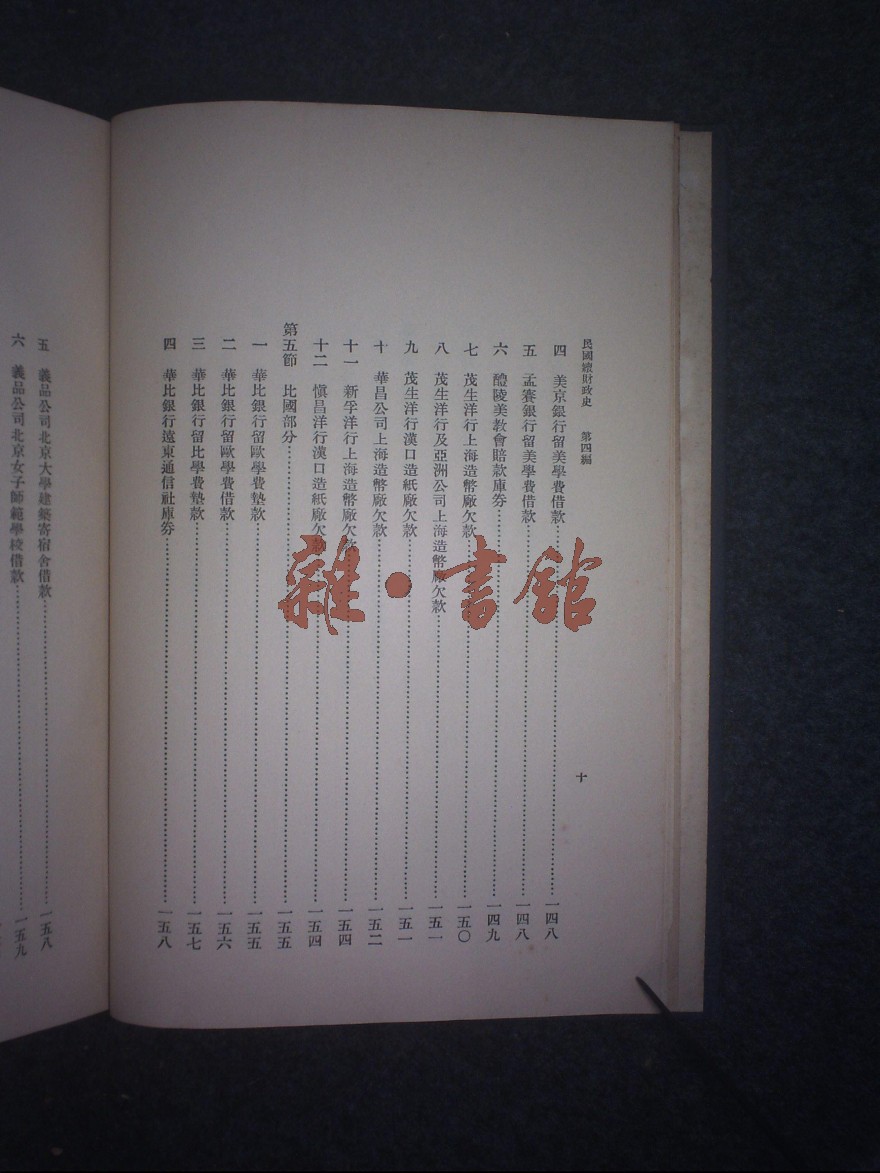 民國續財政史　第四編
十
四　美京銀行留美學費借款……一四八
五　孟賽銀行留美學費借款……一四八
六　醴陵美教會賠款庫券……一四九
七　茂生洋行上海造幣廠欠款……一五〇
八　茂生洋行及亞洲公司上海造幣廠欠款……一五一
九　茂生洋行漢口造紙廠欠款……一五一
十　華昌公司上海造幣廠欠款……一五二
十一　新孚洋行上海造幣廠欠款……一五四
十二　愼昌洋行漢口造紙廠欠款……一五四
第五節　比國部分……一五五
一　華比銀行留歐學費墊款……一五五
二　華比銀行留歐學費借款……一五六
三　華比銀行留比學費墊款……一五七
四　華比銀行遠東通信社庫券……一五八
五　義品公司北京大學建築寄宿舍借款……一五八
六　義品公司北京女子師範學校借款……一五九
雜·書館